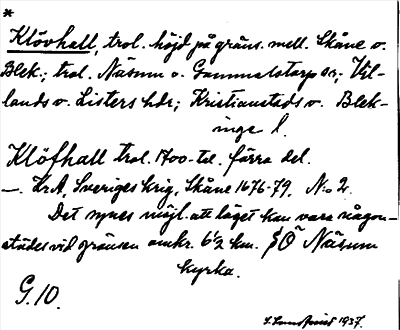 *
Klövhall, trol. höjd på gräns. mell. Skåne o.
Blek.; trol. Näsum o. Gammalstorp snr; Vil-
lands o. Listers hdr; Kristianstads o. Blek-
inge l.
Klöfhall trol. 1700-tal. förra del.
—. Kr.A. Sveriges krig, Skåne 1676-79. N:o 2.
Det synes möjl. att läget kan vara någon-
städes vid gränsen omkr. 6½ km. SÖ Näsum
kyrka.
G. 10.
1937.